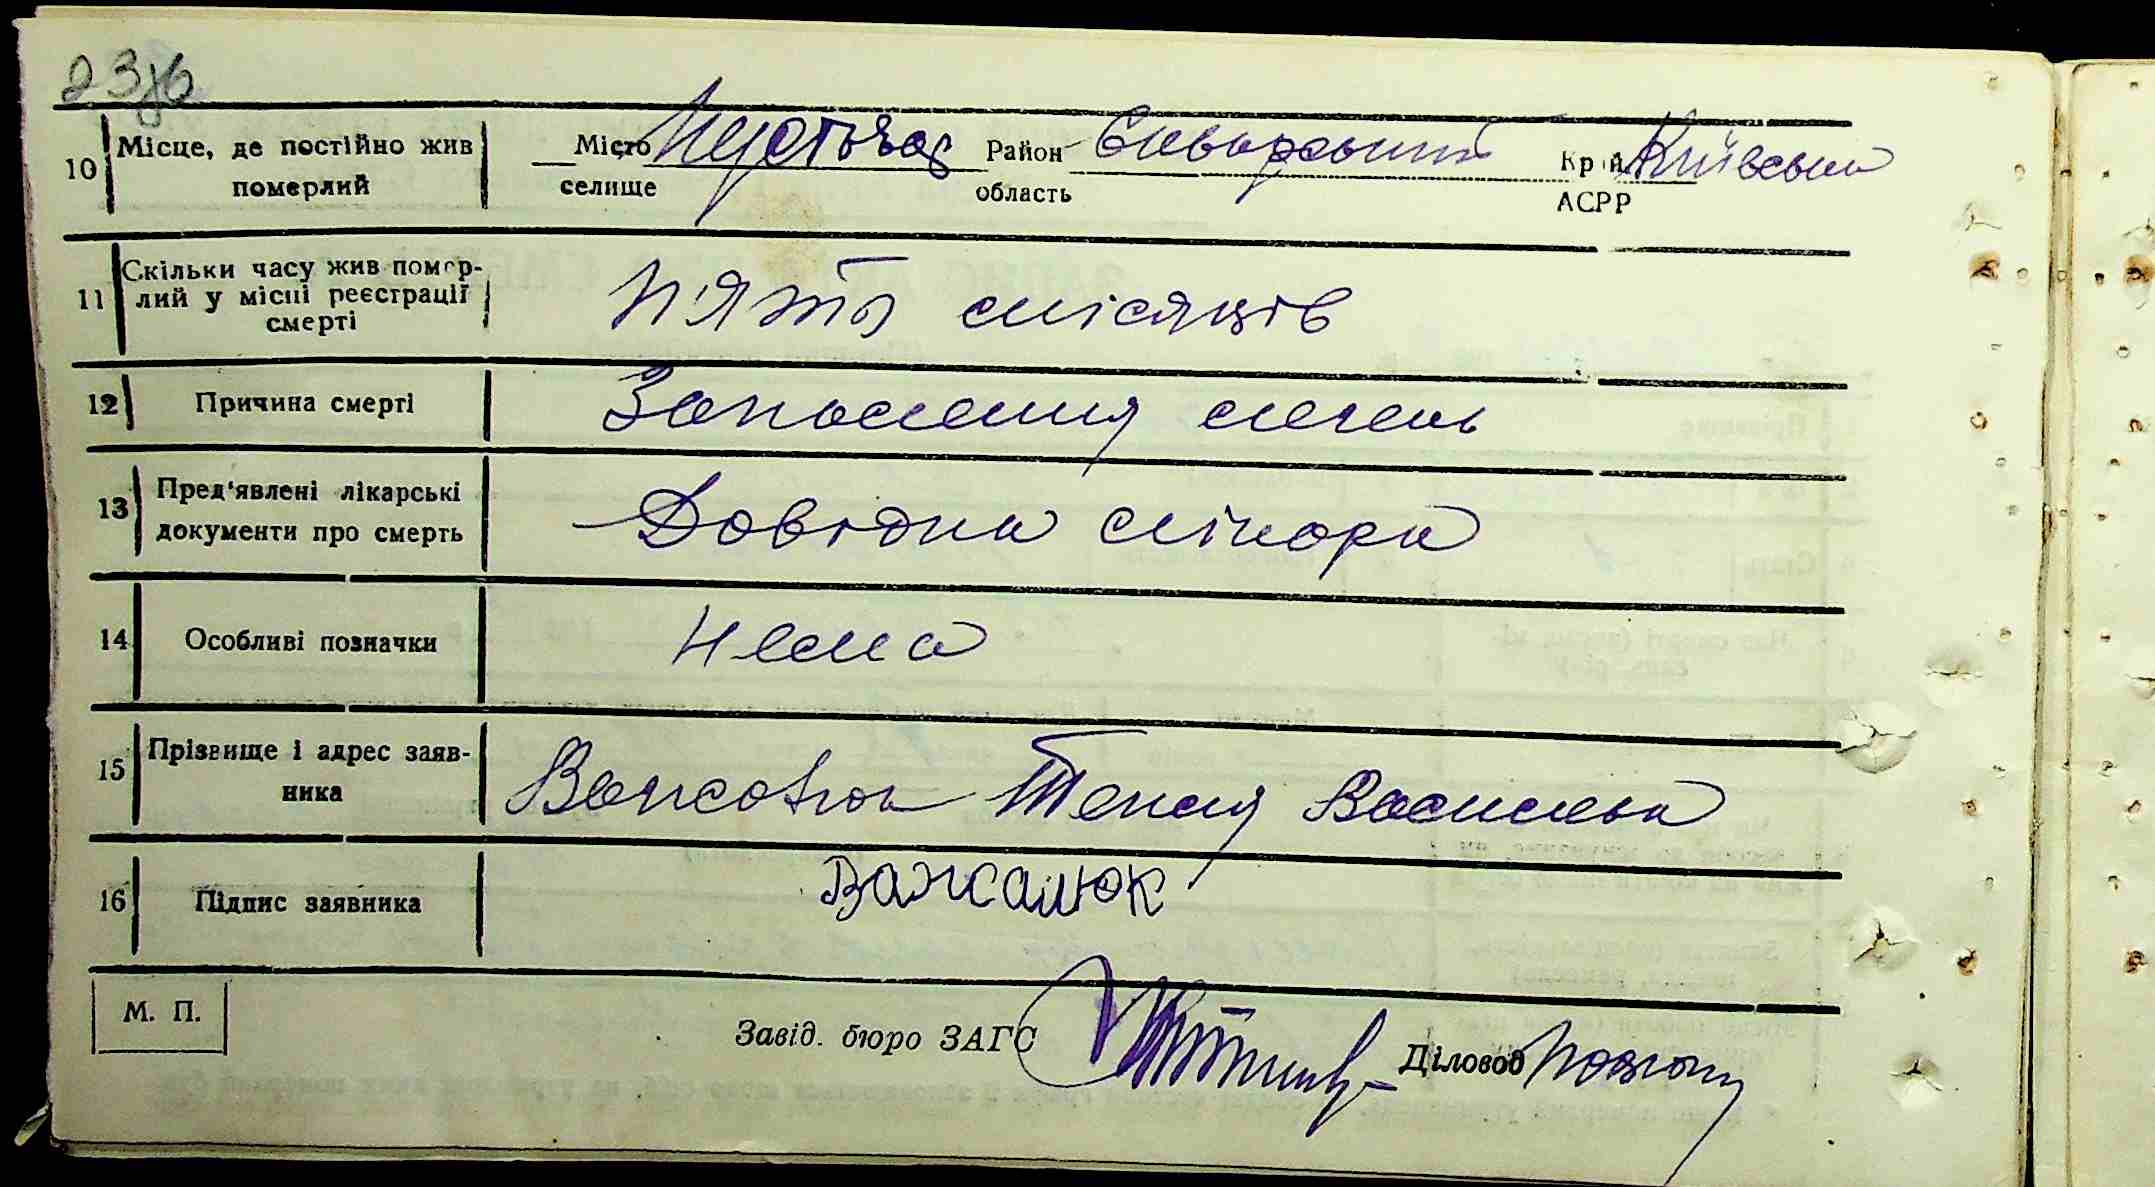 23зв
10 Місце, де постійно жив померлий Місто селище Район область Сквирський Край АСРР Київська
11 Скільки часу жив помер-
лий у місці реєстрації
смерті п'ять місяців
12 Причина смерті Запалення легень
13 Пред'явлені лікарські
документи про смерть Довідка лікаря
14 Особливі позначки нема
15 Прізвище і адрес заяв-
ника Василівна
16 Підпис заявника Важалюк
М. П.
Завід. бюро ЗАГС Діловод